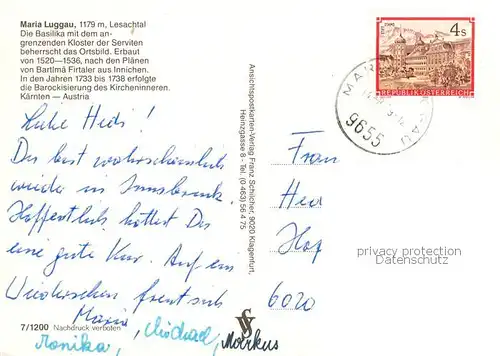 Maria Luggau, 1179 m, Lesachtal
Die Basilika mit dem an-
grenzenden Kloster der Serviten
beherrscht das Ortsbild. Erbaut
von 1520—1536, nach den Plänen
von Bartlmä Firtaler aus Innichen.
In den Jahren 1733 bis 1738 erfolgte
die Barockisierung des Kircheninneren.
Kärnten — Austria
Liebe Hedi!
Du bist wahrscheinlich
wieder in Innsbruck.
Hoffentlich hattest Du
eine gute Kur. Auf ein
Wiedersehen freut sich
Maria
Monika, Michael, Markus
7/1200 Nachdruck verboten
Ansichtspostkarten-Verlag Franz Schilcher, 9020 Klagenfurt,
Heinzgasse 8 - Tel. (0 463) 56 4 75
4 S
STIFT STAMS
REPUBLIK ÖSTERREICH
MARIA LUGGAU
9655
Frau
Hed
Hof
6020
privacy protection
Datenschutz